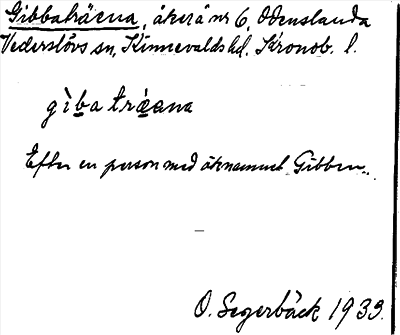 Gibbaträena, åker å nr 6, Odenslanda
Vederslövs sn, Kinnevalds hd. Kronob. l.
gìba träena
Efter en person med öknamnet Gibben.
O. Segerbäck 1933.